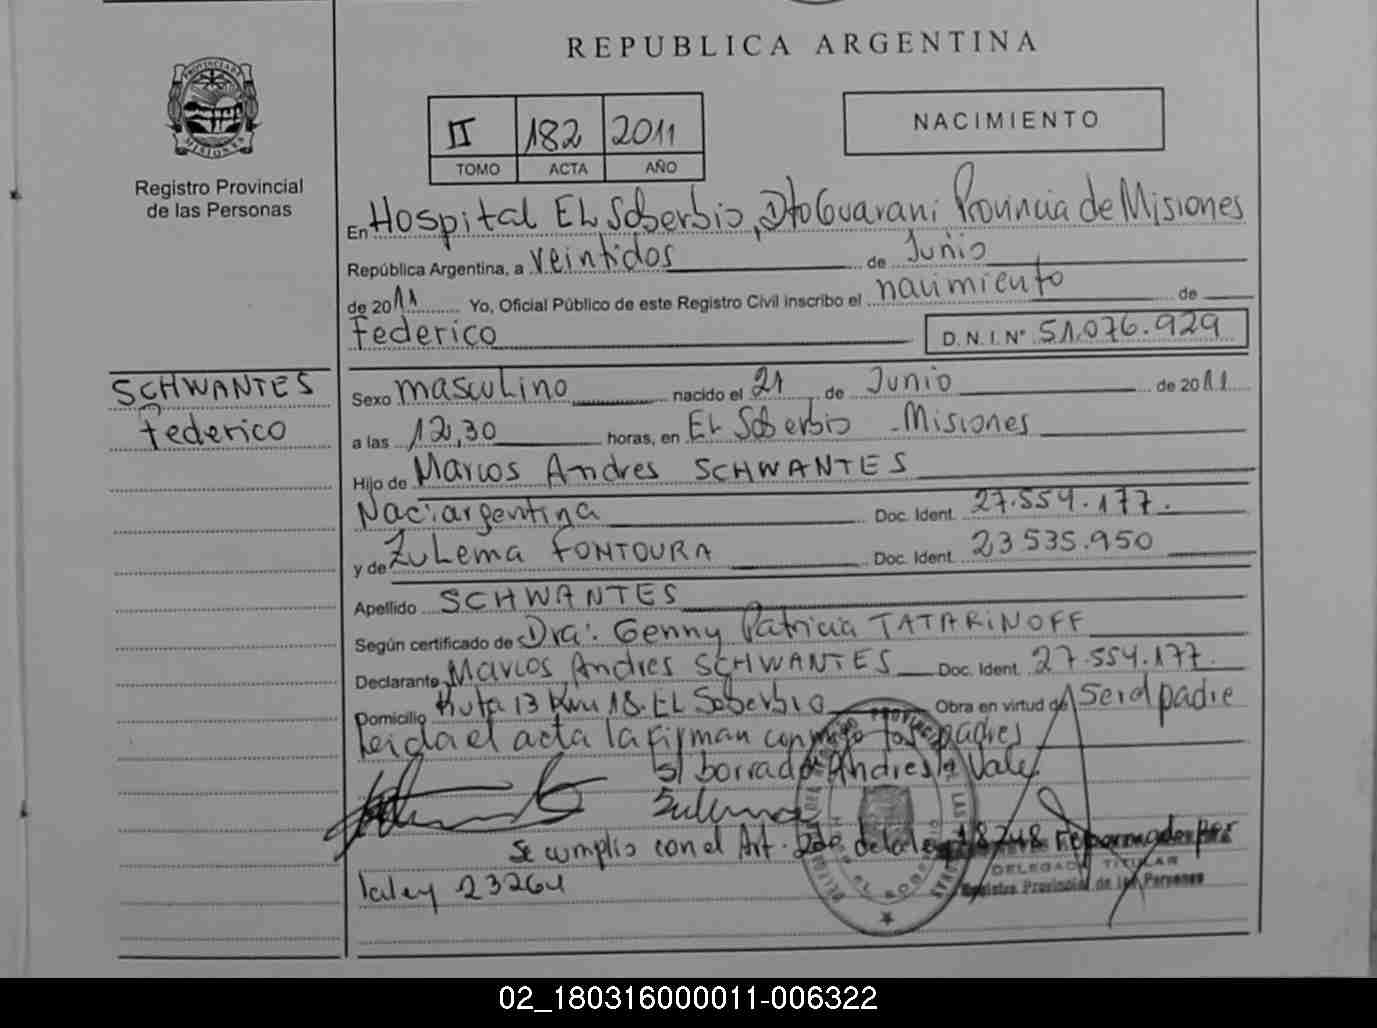 REPUBLICA ARGENTINA
PROVINCIA DE MISIONES
Registro Provincial
de las Personas
II 182 2011
TOMO ACTA AÑO
NACIMIENTO
En Hospital EL Soberbio, Dto Guarani Provincia de Misiones
República Argentina, a veintidos de Junio
de 2011 Yo, Oficial Público de este Registro Civil inscribo el nacimiento de
Federico D.N.I. Nº 51.076.929
SCHWANTES
Federico
Sexo masculino nacido el 21 de Junio de 2011
a las 12,30 horas, en EL Soberbio - Misiones
Hijo de Marcos Andres SCHWANTES
Nac: argentina Doc. Ident. 27.554.177.
y de Zulema FONTOURA Doc. Ident. 23535.950
Apellido SCHWANTES
Según certificado de Dra: Genny Patricia TATARINOFF
Declarante Marcos Andres SCHWANTES Doc. Ident. 27.554.177.
Domicilio Ruta 13 Km 18. EL Soberbio Obra en virtud de Ser el padre
Leida el acta la firman conmigo los padres
s/ borrado Andres Vale
Zulema
Se cumplio con el Art. 2do de la ley 18248 Reformado por
la ley 23264
DELEGADO TITULAR
Registro Provincial de las Personas
02_180316000011-006322